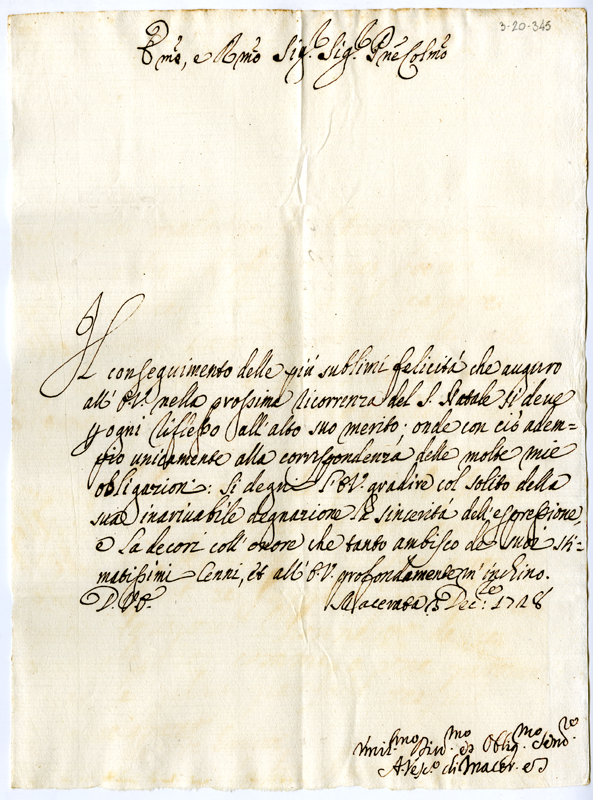 3-20-345
Emo, e Rmo Sig.r Sig.r Pne Colmo
Il conseguimento delle più sublimi felicità che auguro
all' E.V. nella prossima ricorrenza del S. Natale si deve
p ogni riflesso all' alto suo merito; onde con ciò adem=
pio unicamente alla corrispondenza delle molte mie
obligazioni: Si degni l' E.V. gradire col solito della
sua inarivabile degnazione la sincerità dell' espressione,
e la decori coll' onore che tanto ambisco de suoi sti=
matissimi Cenni, et all' E.V. profondamente m' inchino.
D. V.E. Macerata 3 Dec.re 1728
Umil.mo Div.mo ed Obblig.mo Serv.re
A. Vesc.o di Macer.